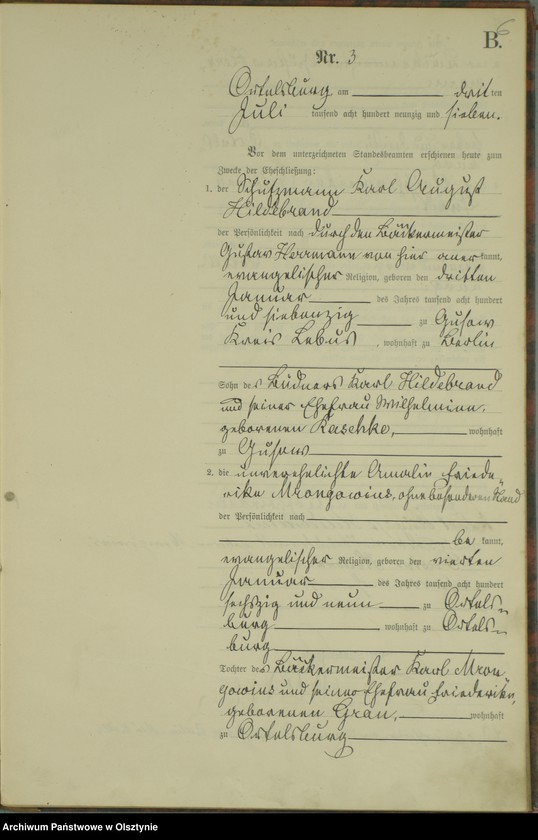 B.
6
Nr. 3
Ortelsburg am dritten
Juli tausend acht hundert neunzig und sieben.
Vor dem unterzeichneten Standesbeamten erschienen heute zum
Zwecke der Eheschließung:
1. der Schutzmann Karl August
Hildebrand
der Persönlichkeit nach durch den Bäckermeister
Gustav Hermann von hier anerkannt,
evangelischer Religion, geboren den dritten
Januar des Jahres tausend acht hundert
und siebenzig zu Gusow
Kreis Lebus, wohnhaft zu Berlin
Sohn des Büdners Karl Hildebrand
und seiner Ehefrau Wilhelmine,
geborenen Kaschke, wohnhaft
zu Gusow
2. die unverehelichte Amalie Friede-
rike Mrongowius, ohne besonderen Stand
der Persönlichkeit nach
be kannt,
evangelischer Religion, geboren den vierten
Januar des Jahres tausend acht hundert
sechszig und neun zu Ortels-
burg wohnhaft zu Ortels-
burg
Tochter des Bäckermeister Karl Mron-
gowius und seiner Ehefrau Friederike,
geborenen Gran, wohnhaft
zu Ortelsburg
Archiwum Państwowe w Olsztynie